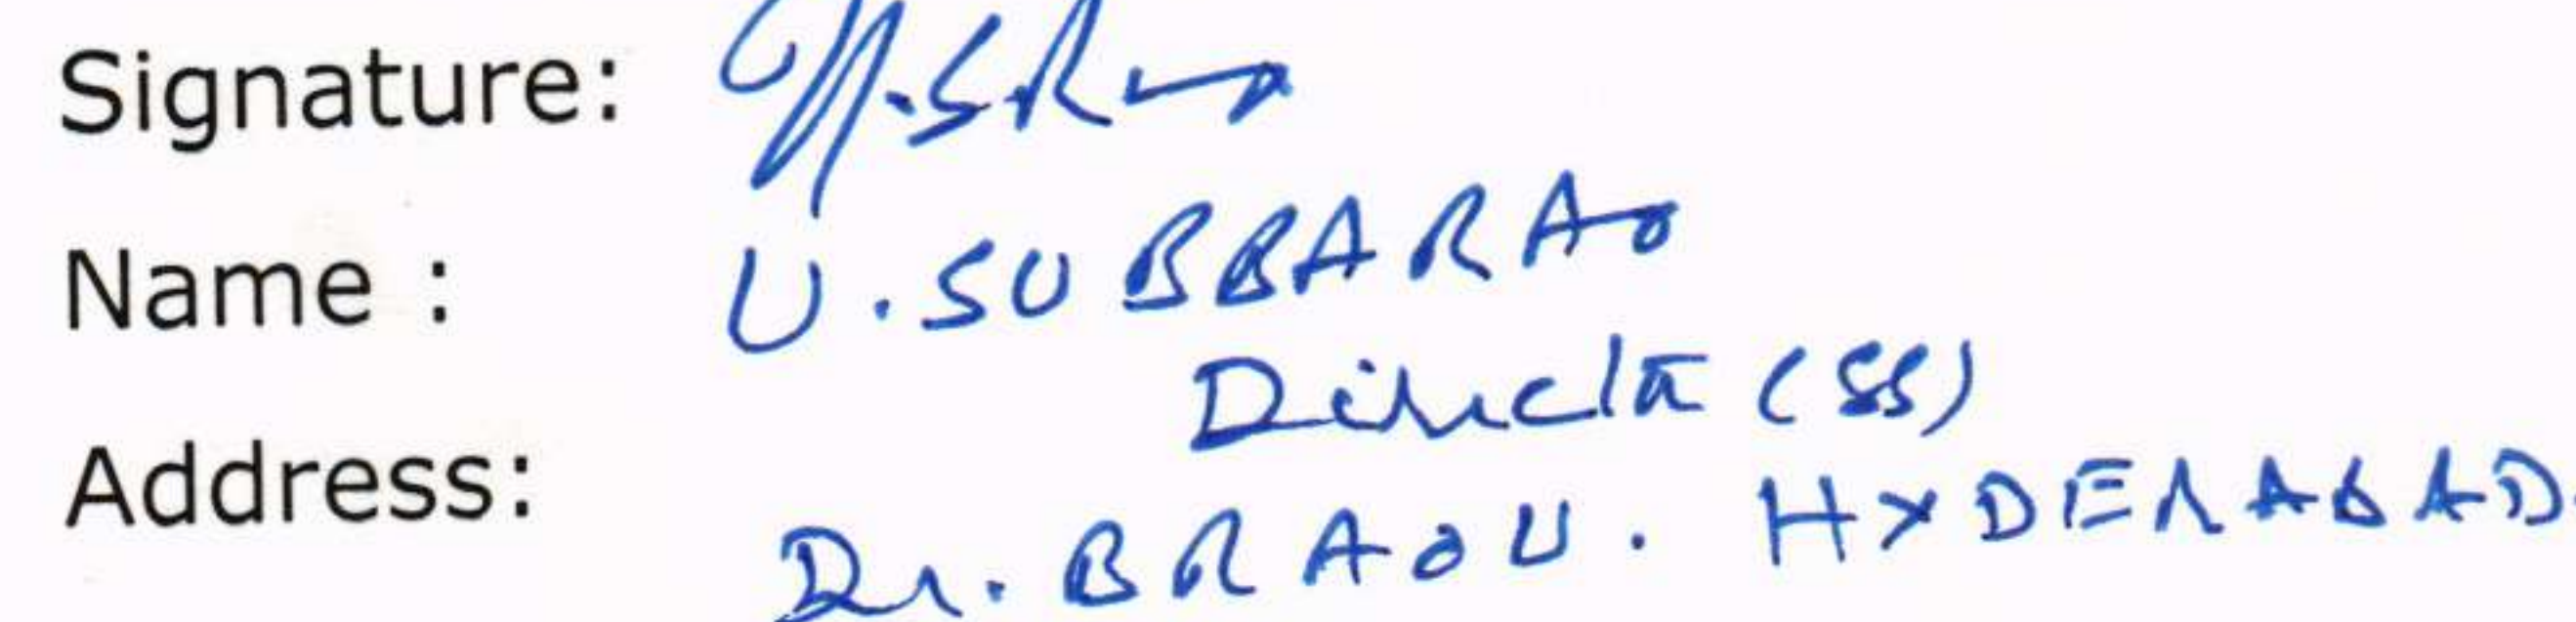 Signature:
Name : U. SUBBARAO
Director (SS)
Address:
Dr. BRAOU. HYDERABAD.